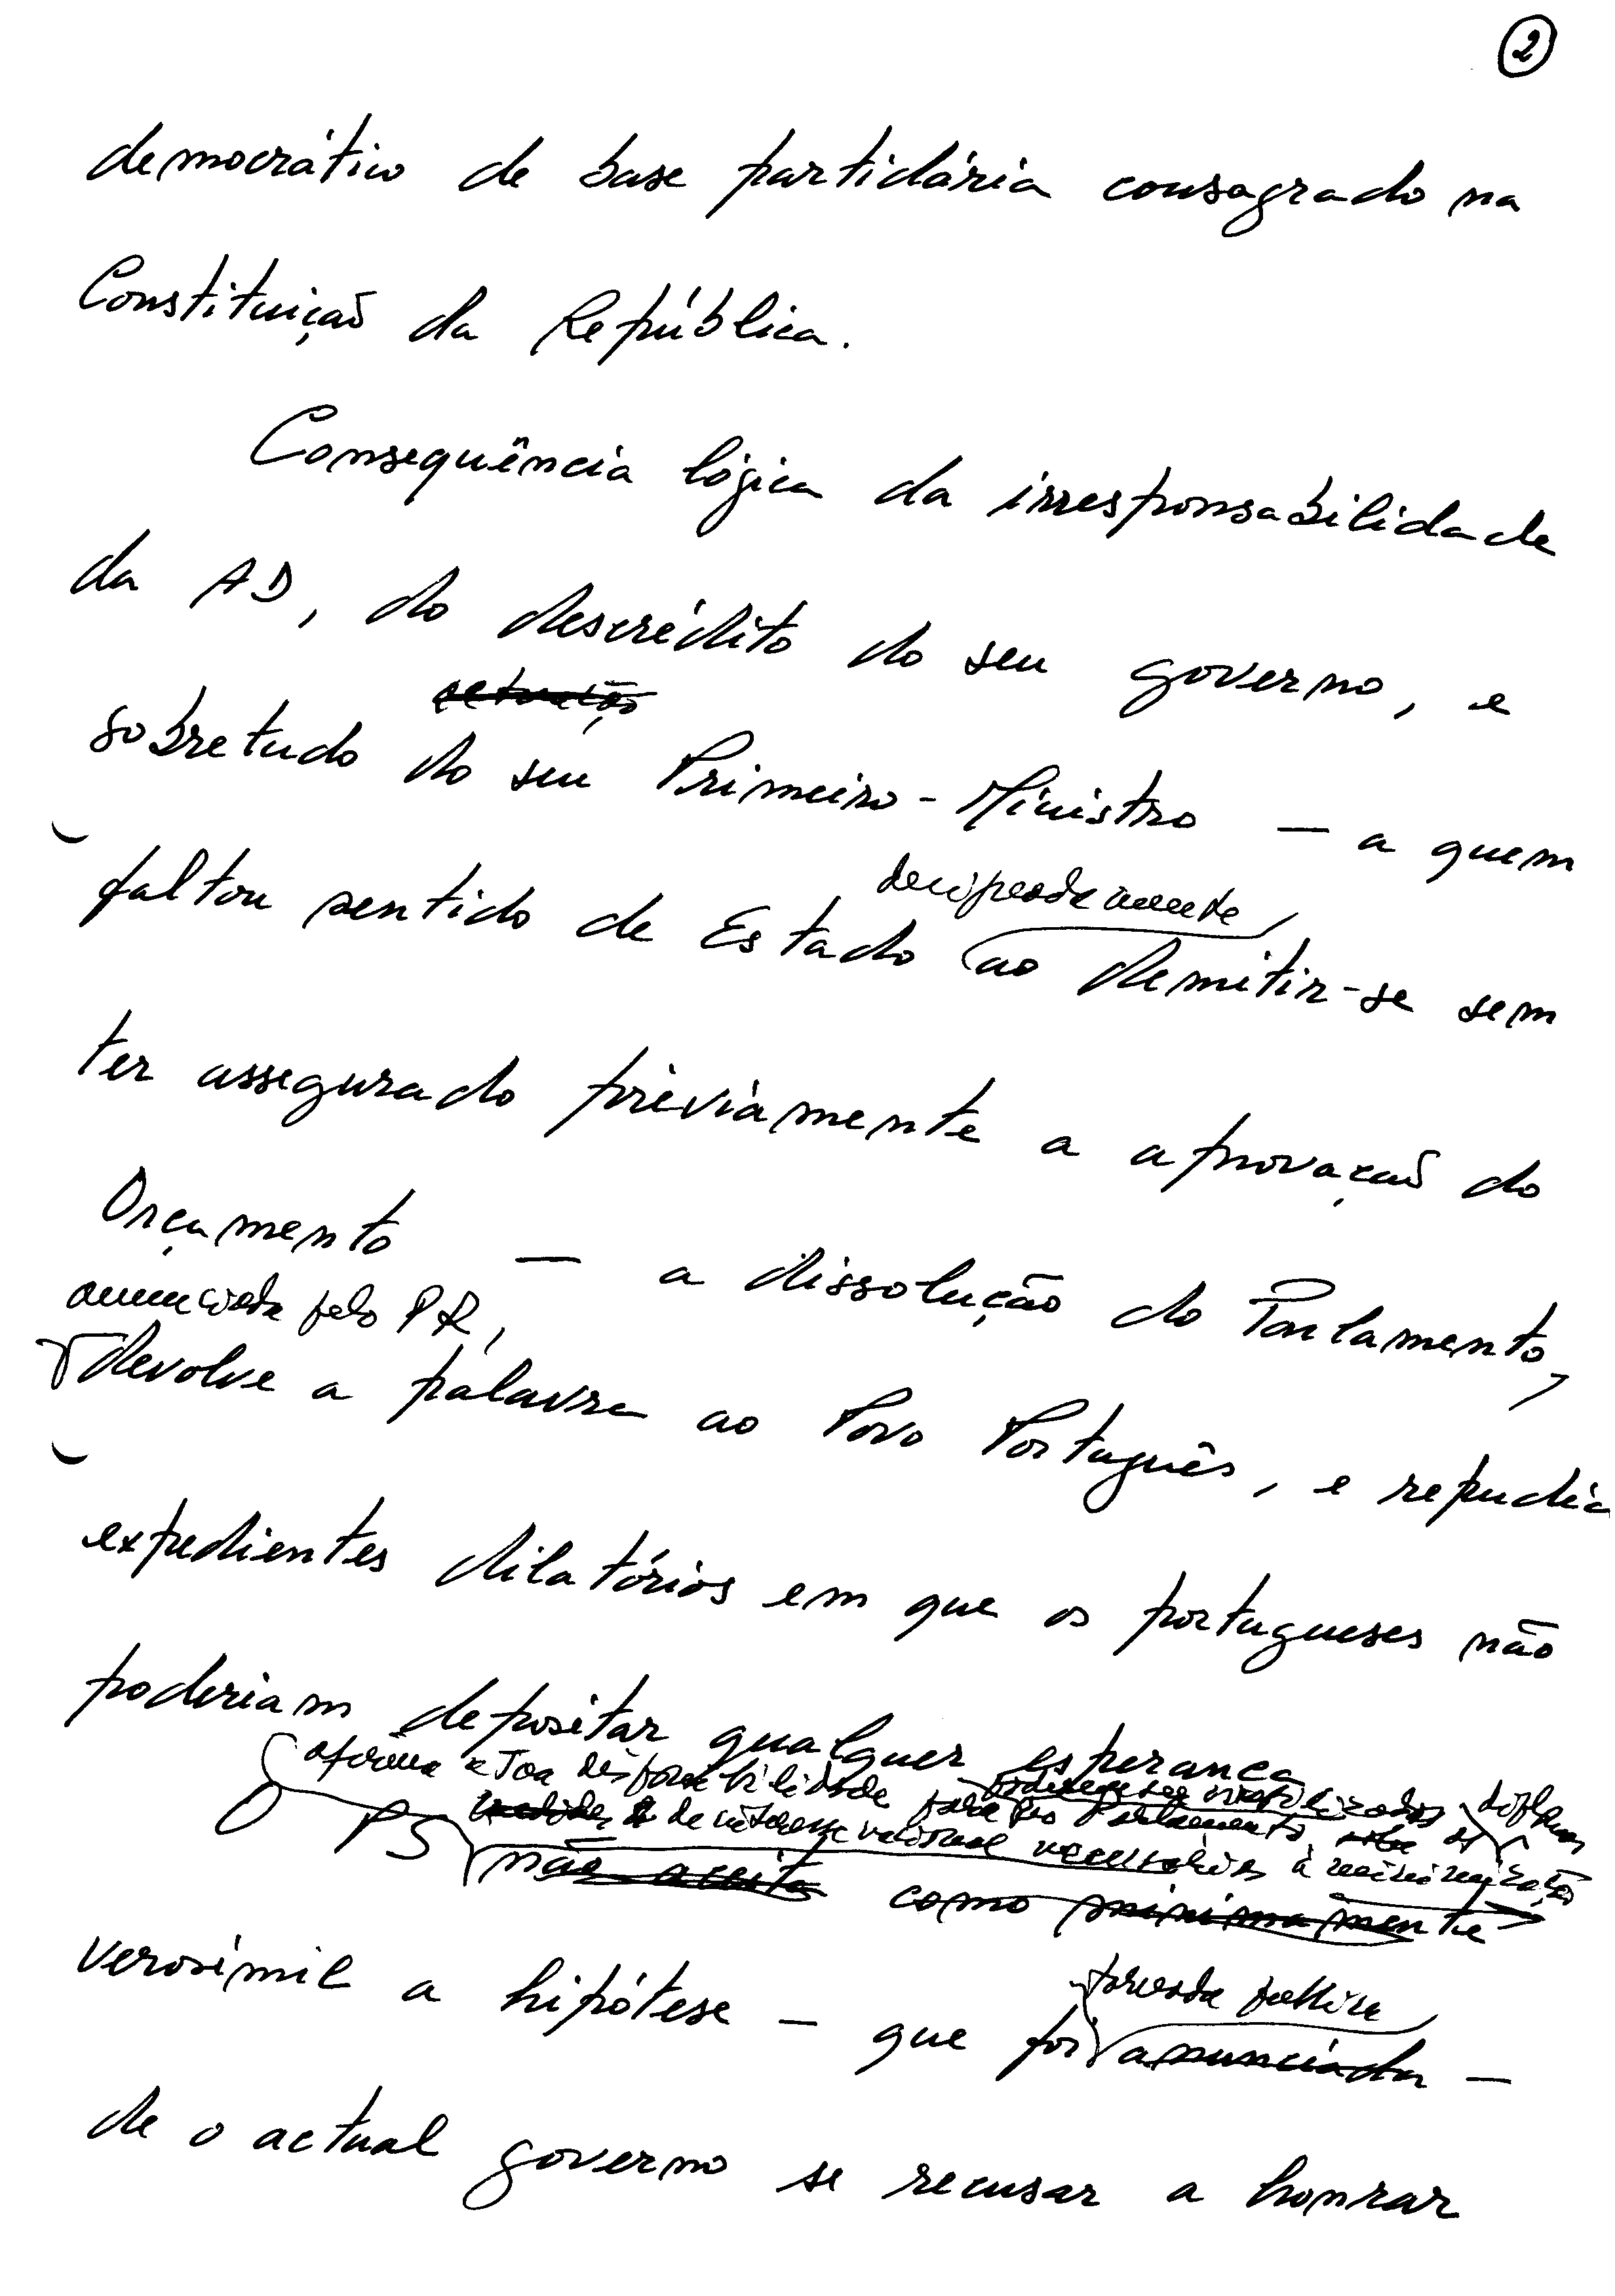 2
democrático de base partidária consagrado na
Constituição da República.
Consequência lógica da irresponsabilidade
da AD, do descrédito do seu governo, e
actuação
sobretudo do seu Primeiro-Ministro — a quem
faltou sentido de Estado ao demitir-se sem
ter assegurado prèviamente a aprovação do
Orçamento — a dissolução do Parlamento,
anunciada pelo PR,
devolve a palavra ao Povo Português, e repudia
expedientes dilatórios em que os portugueses não
poderiam depositar qualquer esperança
afirma a sua disponibilidade para no Parlamento,
de interesse nacional necessários à minimização
O PS não aceita como minimamente
verosímil a hipótese — que foi anunciada —
tornada pública
de o actual governo se recusar a honrar